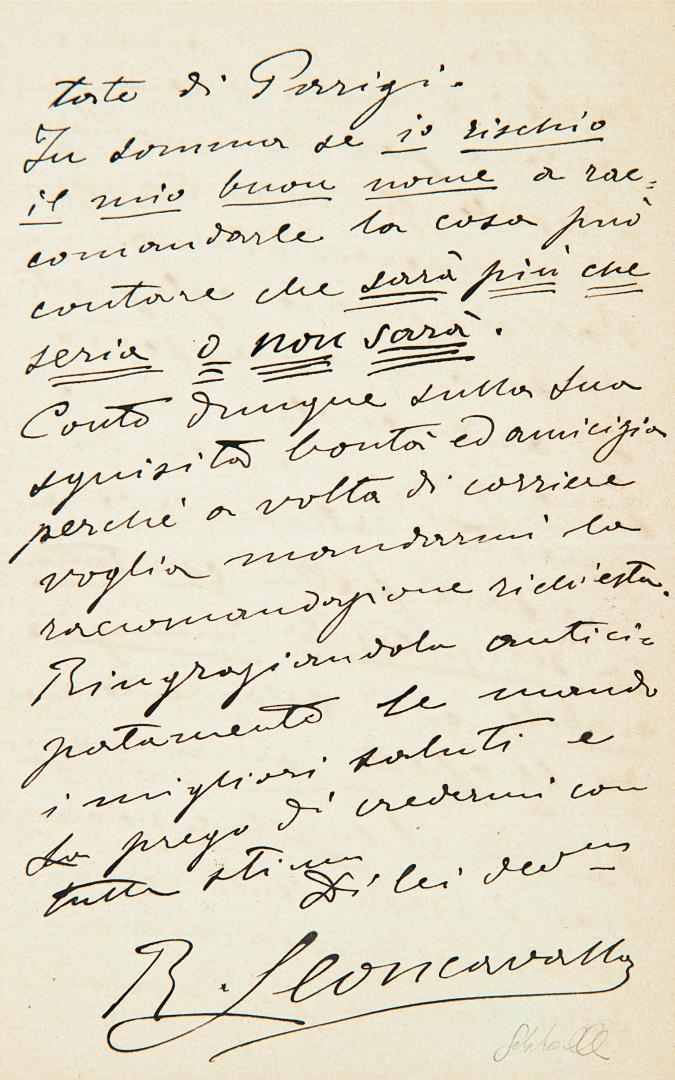 tato di Parigi.
In somma se io rischio
il mio buon nome a rac=
comandarle la cosa può
contare che sarà più che
seria o non sarà.
Conto dunque sulla sua
squisita bontà ed amicizia
perchè a volta di corriere
voglia mandarmi la
raccomandazione richiesta.
Ringraziandola antici=
patamente le mando
i migliori saluti e
La prego di credermi con
tutta stima
Di lei devmo
R. Leoncavallo